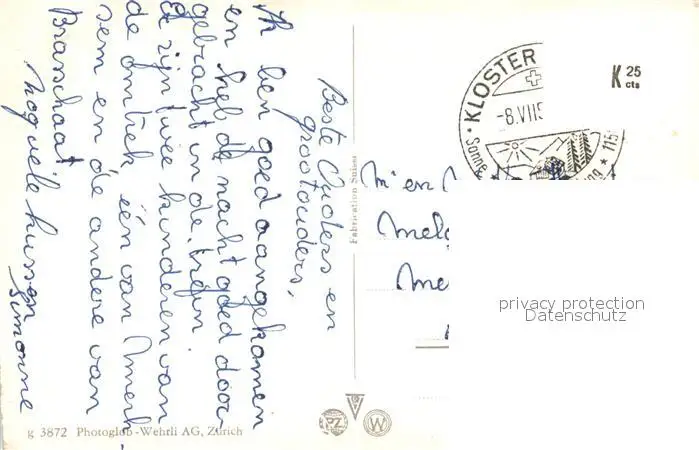 Beste Ouders en
grootouders,
Ik ben goed aangekomen
en heb de nacht goed door-
gebracht in de trein
Er zijn twee kinderen van
de omtrek één van Merk-
sem en de andere van
Brasschaat
Nog vele kussen
Simonne
Fabrication Suisse
KLOSTER
-8.VII5
Sonne
115
K 25
cts
M' en
Melo
Me
privacy protection
Datenschutz
PZ
W
g 3872 Photoglob-Wehrli AG, Zürich